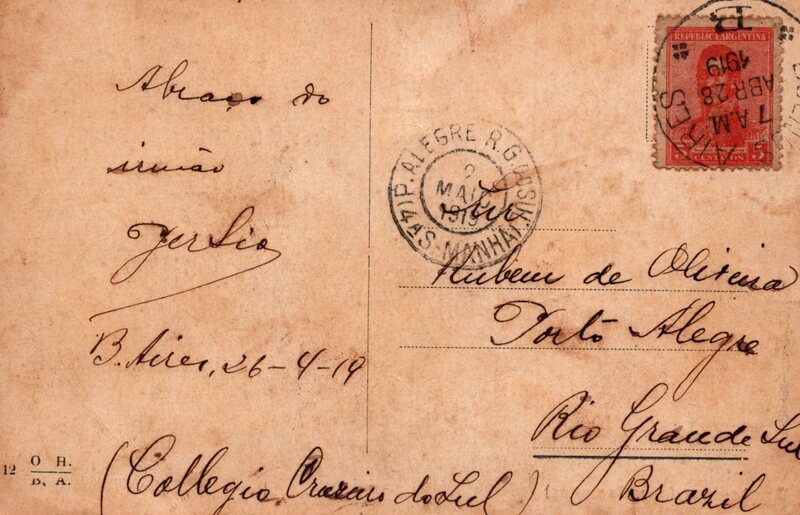 Abraço do
irmão
B. Aires, 26-4-19
12 O. H.
B, A.
(Collegio Cruzeiro do Sul)
P. ALEGRE R.G. DO SUL
2
MAIO
1919
(4ªS-MANHÃ)
REPUBLICA ARGENTINA
5
CENTAVOS
BUENOS AIRES
7 A.M
ABR 28
1919
12
Snr
Rubem de Oliveira
Porto Alegre
Rio Grande Sul
Brazil